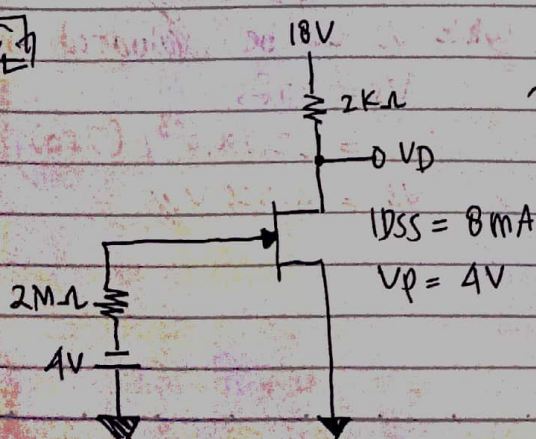 18V
2KΩ
VD
IDSS = 8mA
VP = 4V
2MΩ
4V